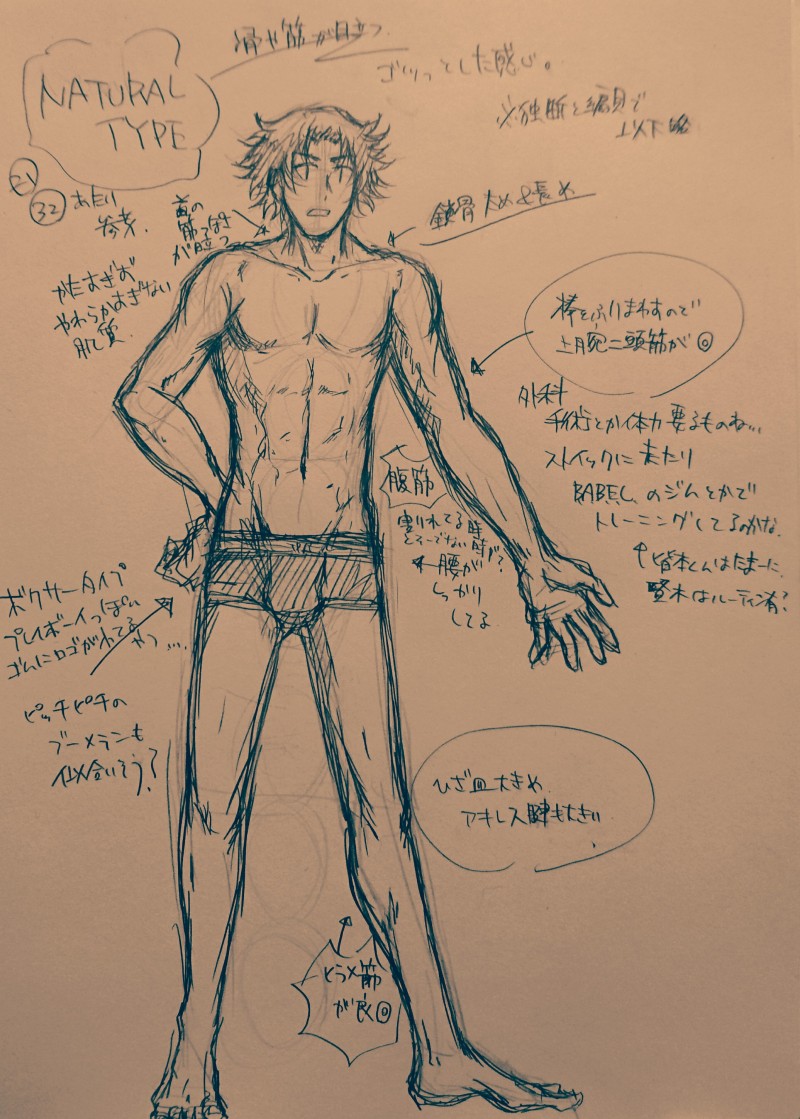 NATURAL
TYPE
骨や筋が目立つ
ゴツっとした感じ。
※独断と偏見で
以下略
21
32 あたり
参考.
首の
筋っぽさ
が目立つ
鎖骨 太め&長め
かたすぎず
やわらかすぎない
肌質.
棒をふりまわすので
上腕二頭筋が◎
外科
手術とか体力要るものね…
ストイックに走たり
BABEL のジムとかで
トレーニングしてるのかな.
↑皆本くんはたまーに.
賢木はルーティン派?
腹筋
割れてる時
そーでない時が?
←腰が
しっかり
してる
ボクサータイプ
プレイボーイっぽい
ゴムにロゴがれてる
やつ….
ピッチピチの
ブーメランも
似合いそう?
ひざ皿大きめ
アキレス腱も大きい.
ヒラメ筋
が良◎